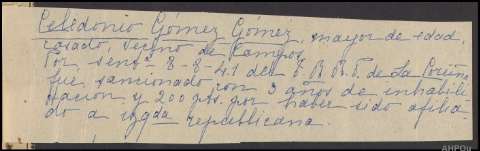 Celedonio Gómez Gómez, mayor de edad,
casado, vecino de Campos
Por sens.ª 8-8-41 del T. R. R. P. de La Coruña
fue sancionado con 3 años de inhabili
tación y 200 pts. por haber sido afilia
do a izqda republicana.
AHPOu